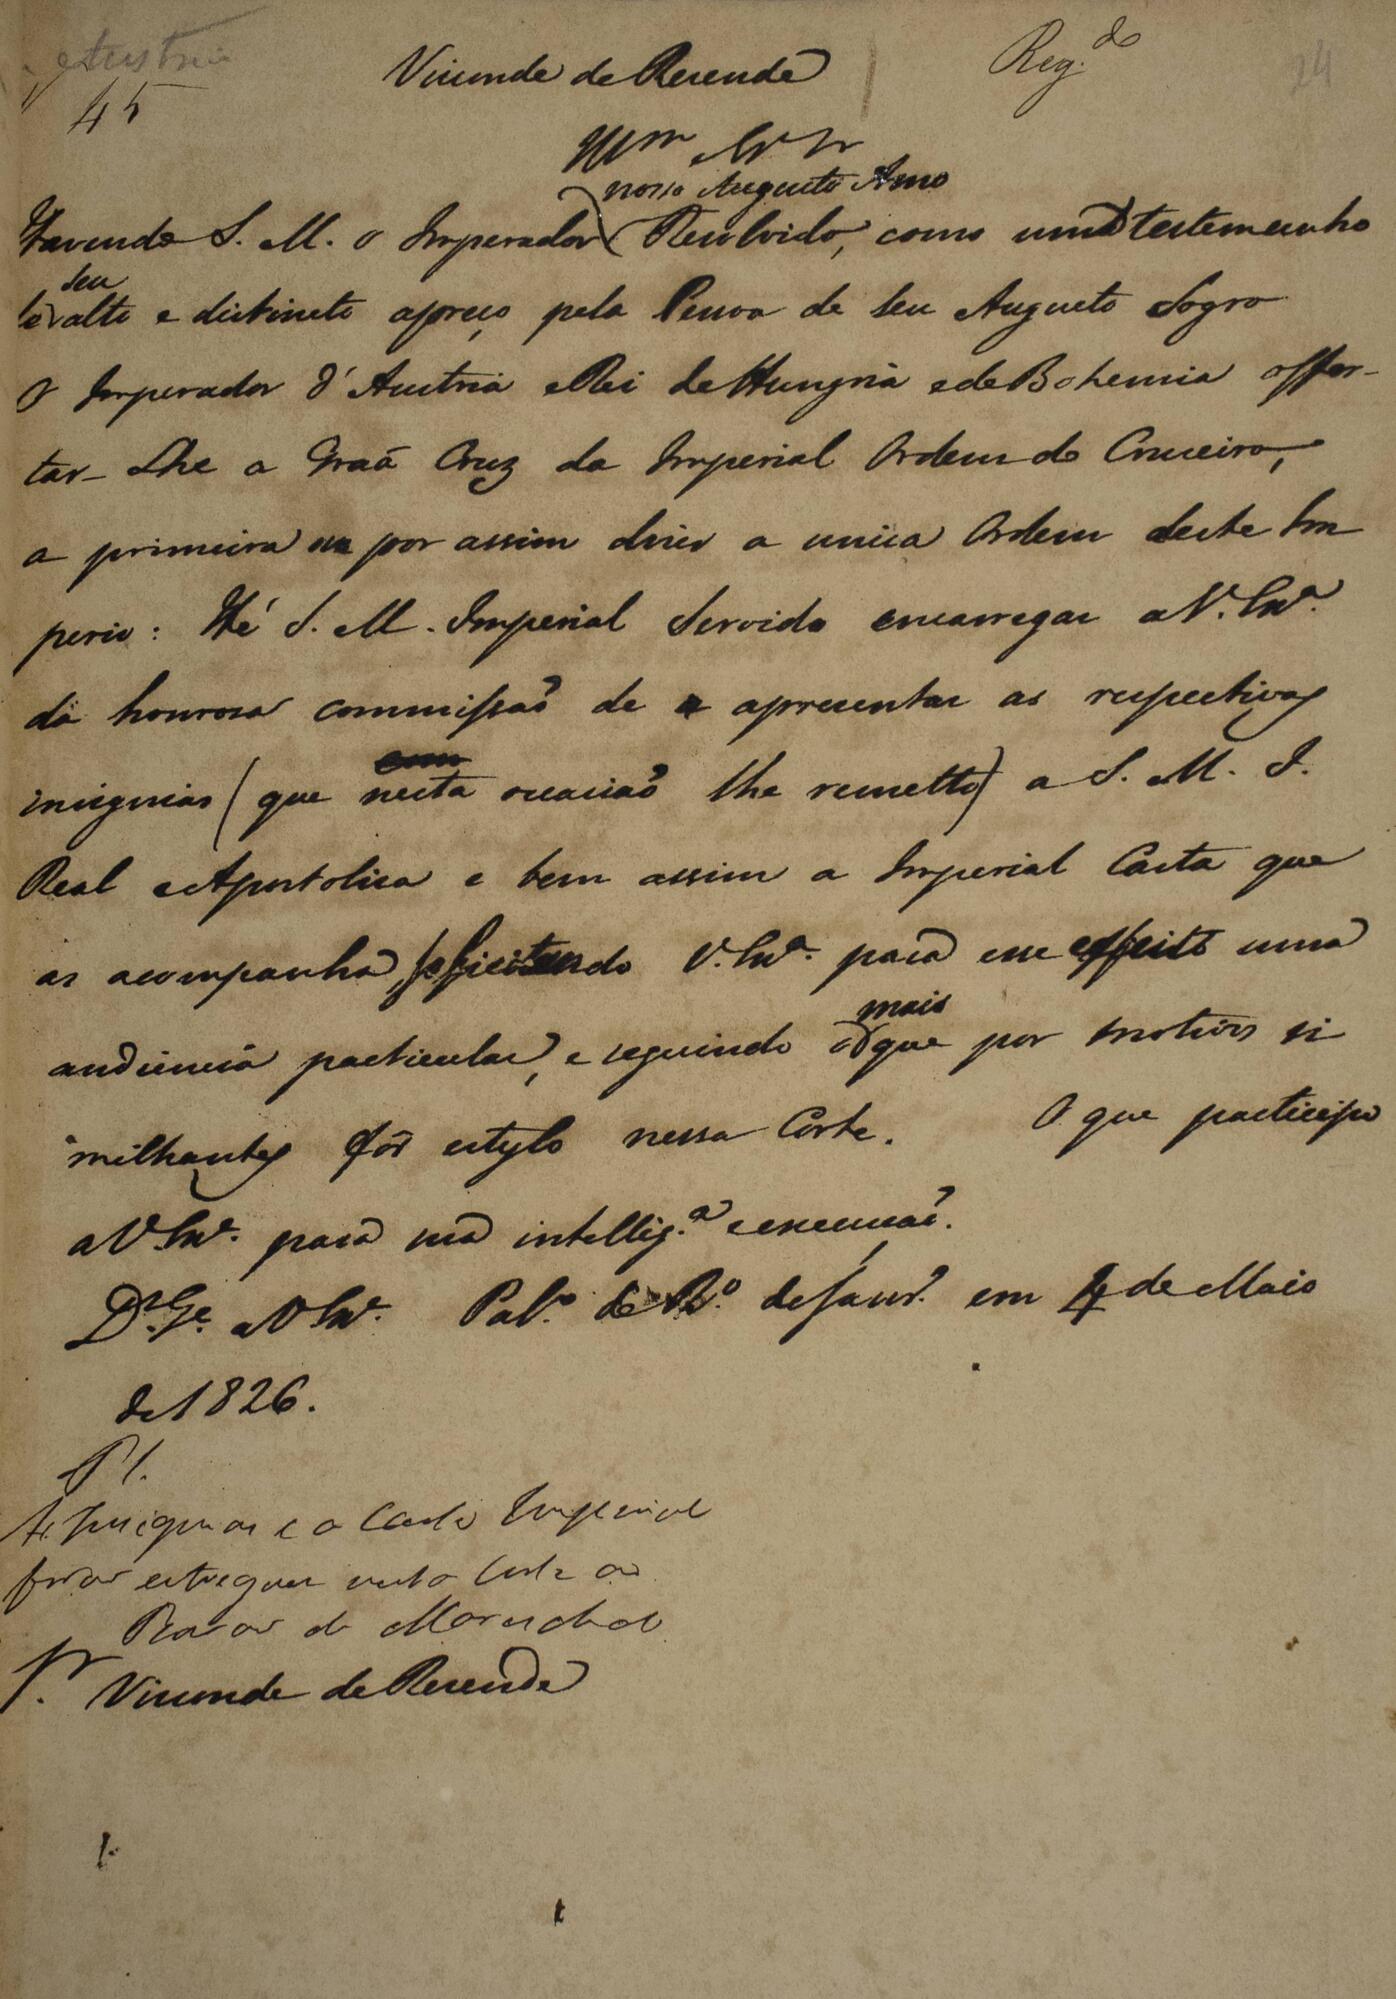 Austria
24
Reg.do
Visconde de Resende
45
Illmo e Exmo Sr
nosso Augusto Amo
Havendo S. M. o Imperador Resolvido, como um testemunho
seu
alto e distincto apreço pela Pessoa de Seu Augusto Sogro
O Imperador d'Austria e Rei de Hungria e de Bohemia offer-
tar-Lhe a Graã Cruz da Imperial Ordem do Cruzeiro,
a primeira ou por assim dizer a unica Ordem deste Im
perio: Hé S. M. Imperial Servido encarregar a V. Exa.
da honrosa commissaõ de apresentar as respectivas
insignias (que nesta occasiaõ lhe remetto) a S. M. I.
Real e Apostolica e bem assim a Imperial Carta que
as acompanha, sollicitando V. Exa. para esse effeito uma
mais
audiencia particular, e seguindo o que por motivos si
milhantes fôr estylo nessa Côrte. O que participo
a V. Exa. para sua intellig.a e execuçaõ.
Ds. Ge. a V. Exa. Pal.o do R.o de Janr.o em 4 de Maio
de 1826.
P. S.
As Insignias e a Carta Imperial
foraõ entregues nesta Corte ao
Baraõ de Mareschal
Sr. Visconde de Resende